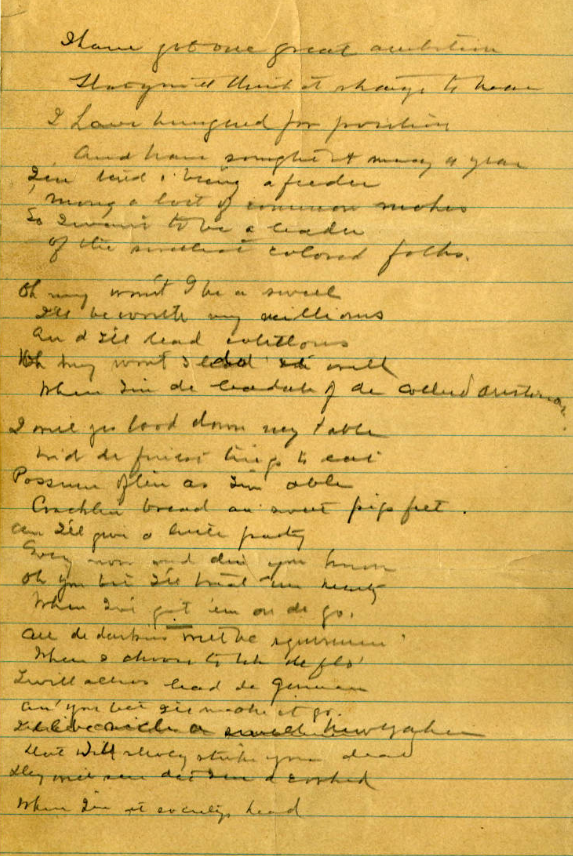 I have got one great ambition
That you'll think it strange to hear
I have hungered for position
And have sought it many a year
I'm tired o' being a feeder
'mong a lot of common
So I want to be a leader
of the swellest colored folks.
Oh my won't I be a swell
I'll be worth my millions
And I'll lead cotillions
Oh my won't I do it well
When I'm de leadah of de colled aristocracy
I will jes load down my table
Wid de finest things to eat
Possum often as I'm able
Cracklin bread an' sweet pigs feet.
an I'll give a little party
Every now and den you know
Oh you bet I'll treat 'em hearty
When I've got 'em on de go.
all de darkies will be squirmin'
When I choose to tek de flo'
I will allus lead de German
an' you bet I'll make it go.
I'll live in a swell
Dat will surely strike you dead
Dey will see dat I'm
When I'm it society's head